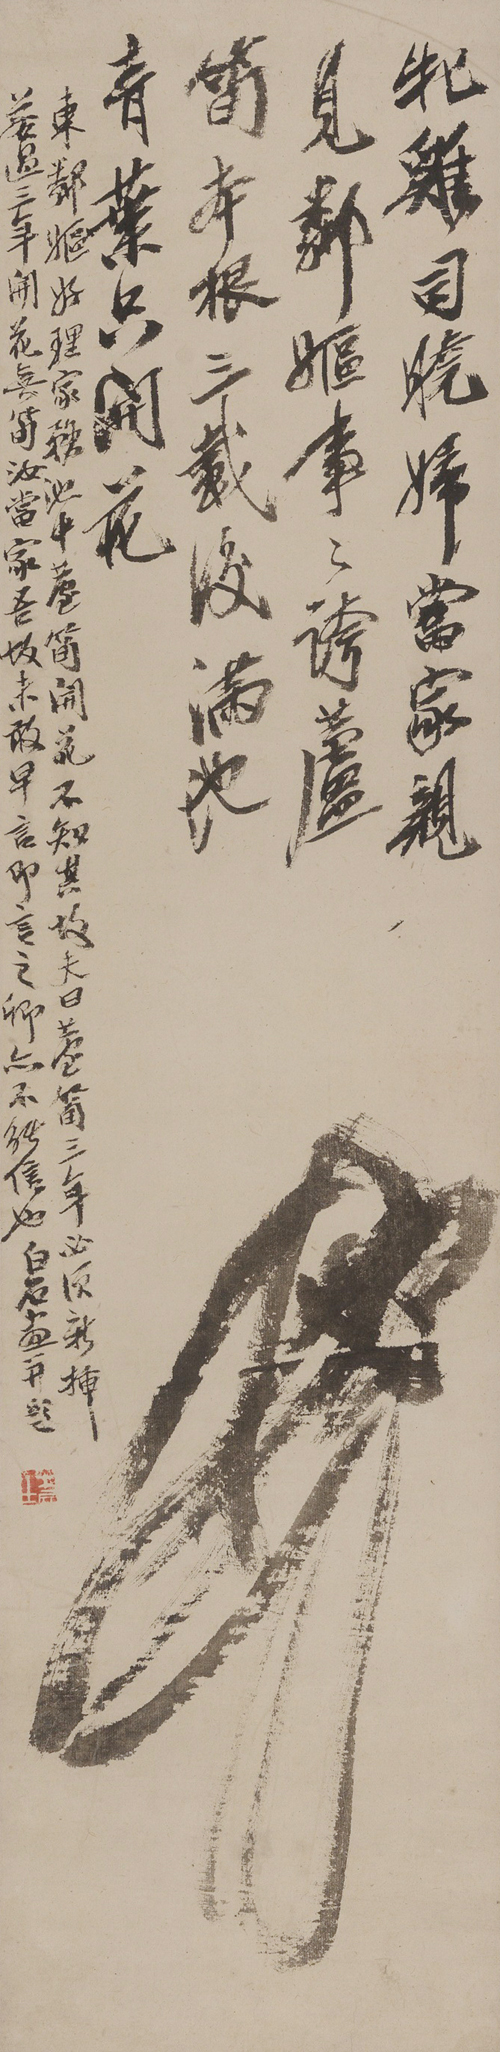 牝雞司曉婦當家親
見鄰嫗事〻誇蘆
筍本根三載後滿池
青葉只開花
東鄰嫗好理家務池中蘆筍開花不知其故夫曰蘆筍三年必須新插
若過三年開花無筍汝當家吾故未敢早言即言之卿亦不能信也白石畫并題